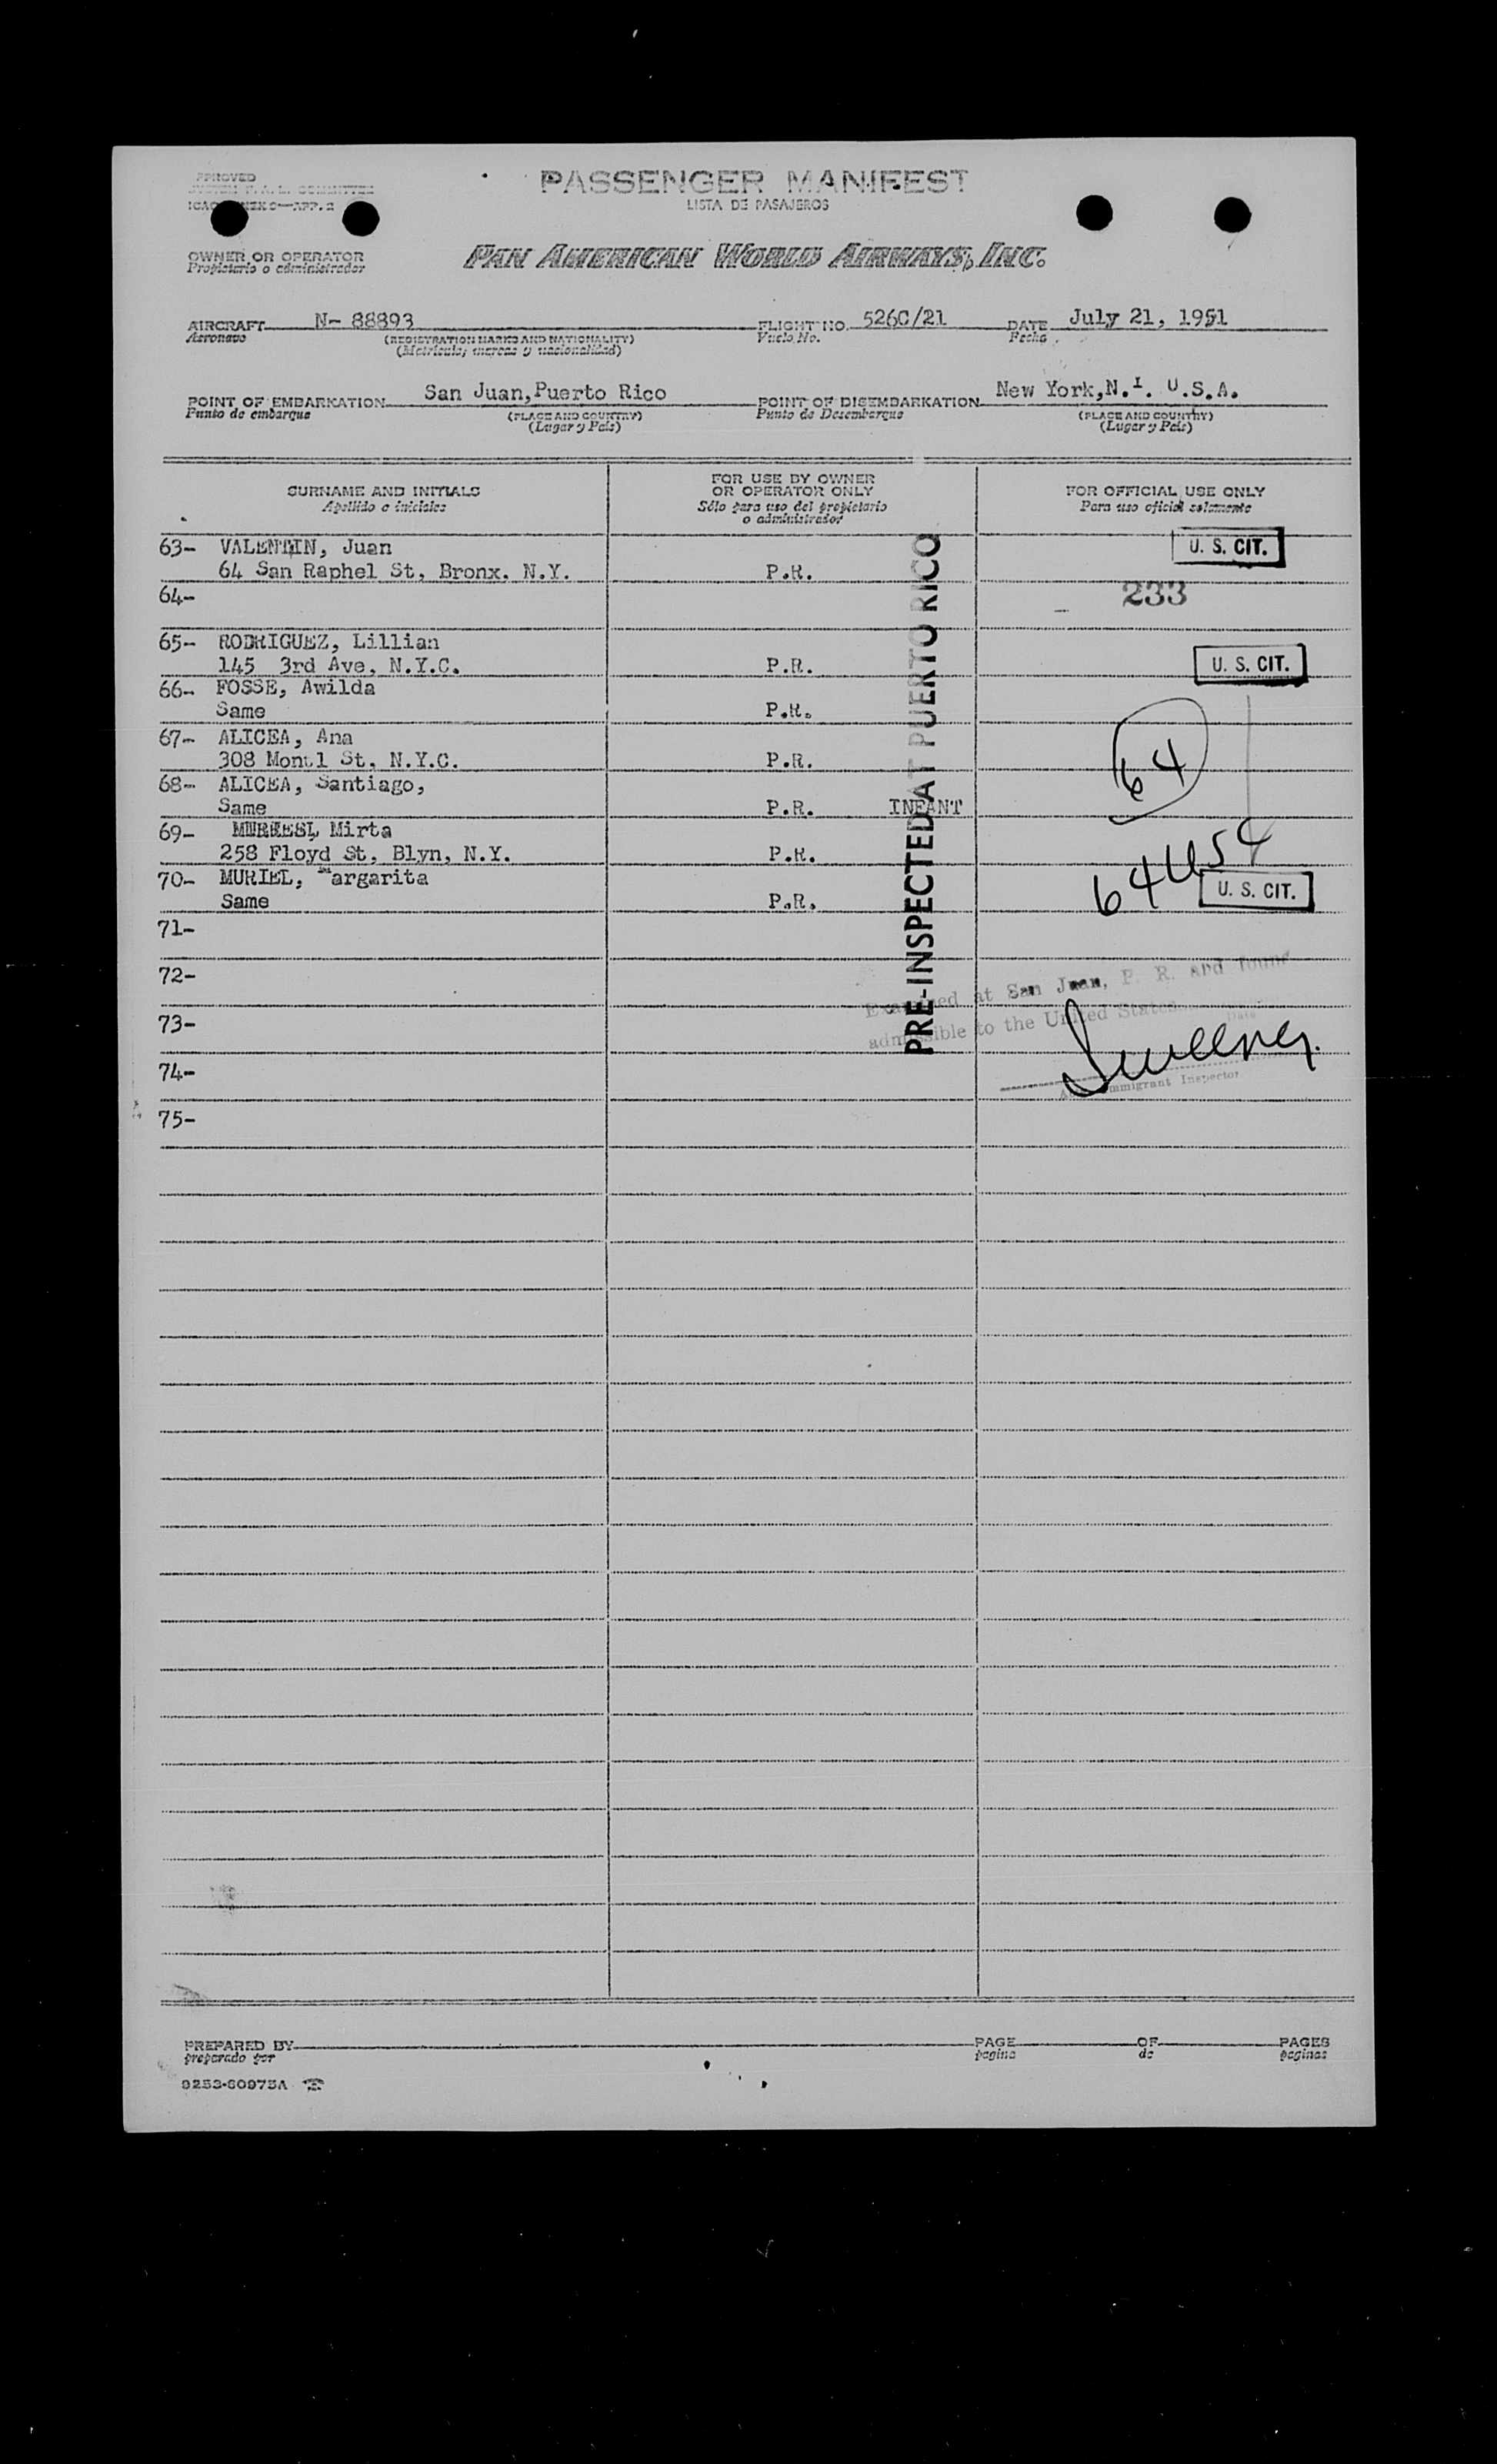 PASSENGER MANIFEST
LISTA DE PASAJEROS
PAN AMERICAN WORLD AIRWAYS, INC.
OWNER OR OPERATOR
Propietario o administrador
AIRCRAFT N- 88893 FLIGHT NO. 526C/21 DATE July 21, 1951
Aeronave (REGISTRATION MARKS AND NATIONALITY) Vuelo No. Fecha
(Matricula, marcas y nacionalidad)
POINT OF EMBARKATION San Juan,Puerto Rico POINT OF DISEMBARKATION New York,N.Y. U.S.A.
Punto de embarque (PLACE AND COUNTRY) Punto de Desembarque (PLACE AND COUNTRY)
(Lugar y País) (Lugar y País)
SURNAME AND INITIALS FOR USE BY OWNER OR OPERATOR ONLY FOR OFFICIAL USE ONLY
Apellido e iniciales Sólo para uso del propietario o administrador Para uso oficial solamente
63- VALENTIN, Juan U. S. CIT.
64 San Raphel St, Bronx. N.Y. P.R.
64- 233
65- RODRIGUEZ, Lillian
145 3rd Ave, N.Y.C. P.R. U. S. CIT.
66- FOSSE, Awilda
Same P.R.
67- ALICEA, Ana
308 St, N.Y.C. P.R. 64
68- ALICEA, Santiago,
Same P.R. INFANT
69- Mirta
258 Floyd St, Blyn, N.Y. P.R. 64 USC
70- MURIEL, Margarita
Same P.R. U. S. CIT.
71-
72-
73-
74-
75-
PRE-INSPECTED AT PUERTO RICO
Examined at San Juan, P. R. and found
admissible to the United States
Date
Sweeney
Immigrant Inspector
PREPARED BY PAGE OF PAGES
preparado por pagina de paginas
9253-60975A